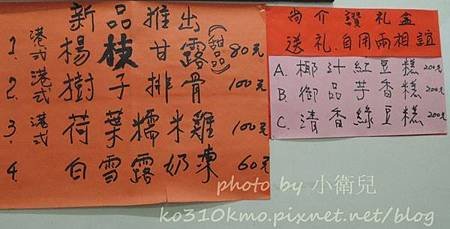 新品推出
1. 港式 楊枝甘露(甜品) 80元
2. 港式 樹子排骨 100元
3. 港式 荷葉糯米雞 100元
4 白雪露奶凍 60元
尚介讚礼盒
送礼.自用兩相誼
A. 椰汁紅豆糕 200元
B. 御品芋香糕 200元
C. 清香綠豆糕 200元
photo by 小衛兒
ko310kmo.pixnet.net/blog